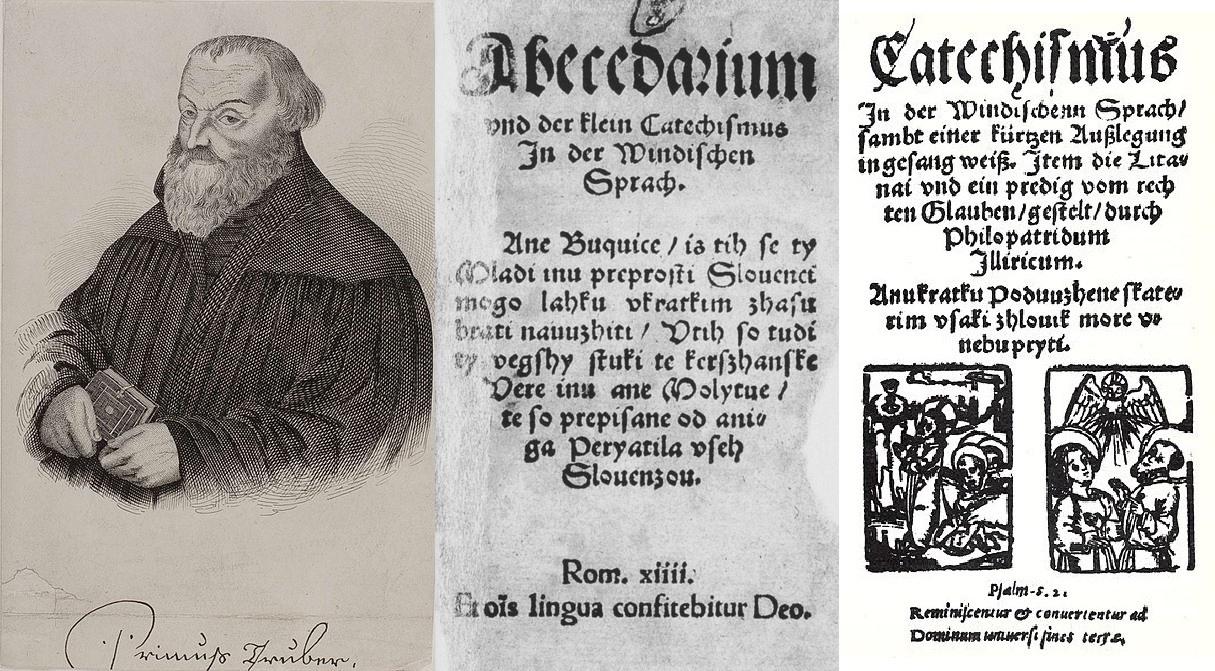 Primuſs Truber.
Abecedarium
vnd der klein Catechiſmus
In der Windiſchen
Sprach.
Ane Buquice / is tih ſe ty
Mladi inu preproſti Slouenci
mogo lahku vkratkim zhaſu
brati nauuzhiti / Vtih ſo tudi
ty vegſhy ſtuki te kerſzhanſke
Vere inu ane Molytue /
te ſo prepiſane od ani⸗
ga Peryatila vſeh
Slouenzou.
Rom. xiiii.
Et oĩs lingua confitebitur Deo.
Catechiſmus
In der Windiſchenn Sprach/
ſambt einer kürtzen Außlegung
in geſang weiß. Item die Lita⸗
nai vnd ein predig vom rech
ten Glauben/geſtelt/durch
Philopatridum
Illiricum.
Anu kratku Poduuzhene ſkate⸗
rim vſaki zhlouik more v⸗
nebu pryti.
Pſalm
Reminiſcentur & conuertentur ad
Dominum vniuerſi fines terræ.